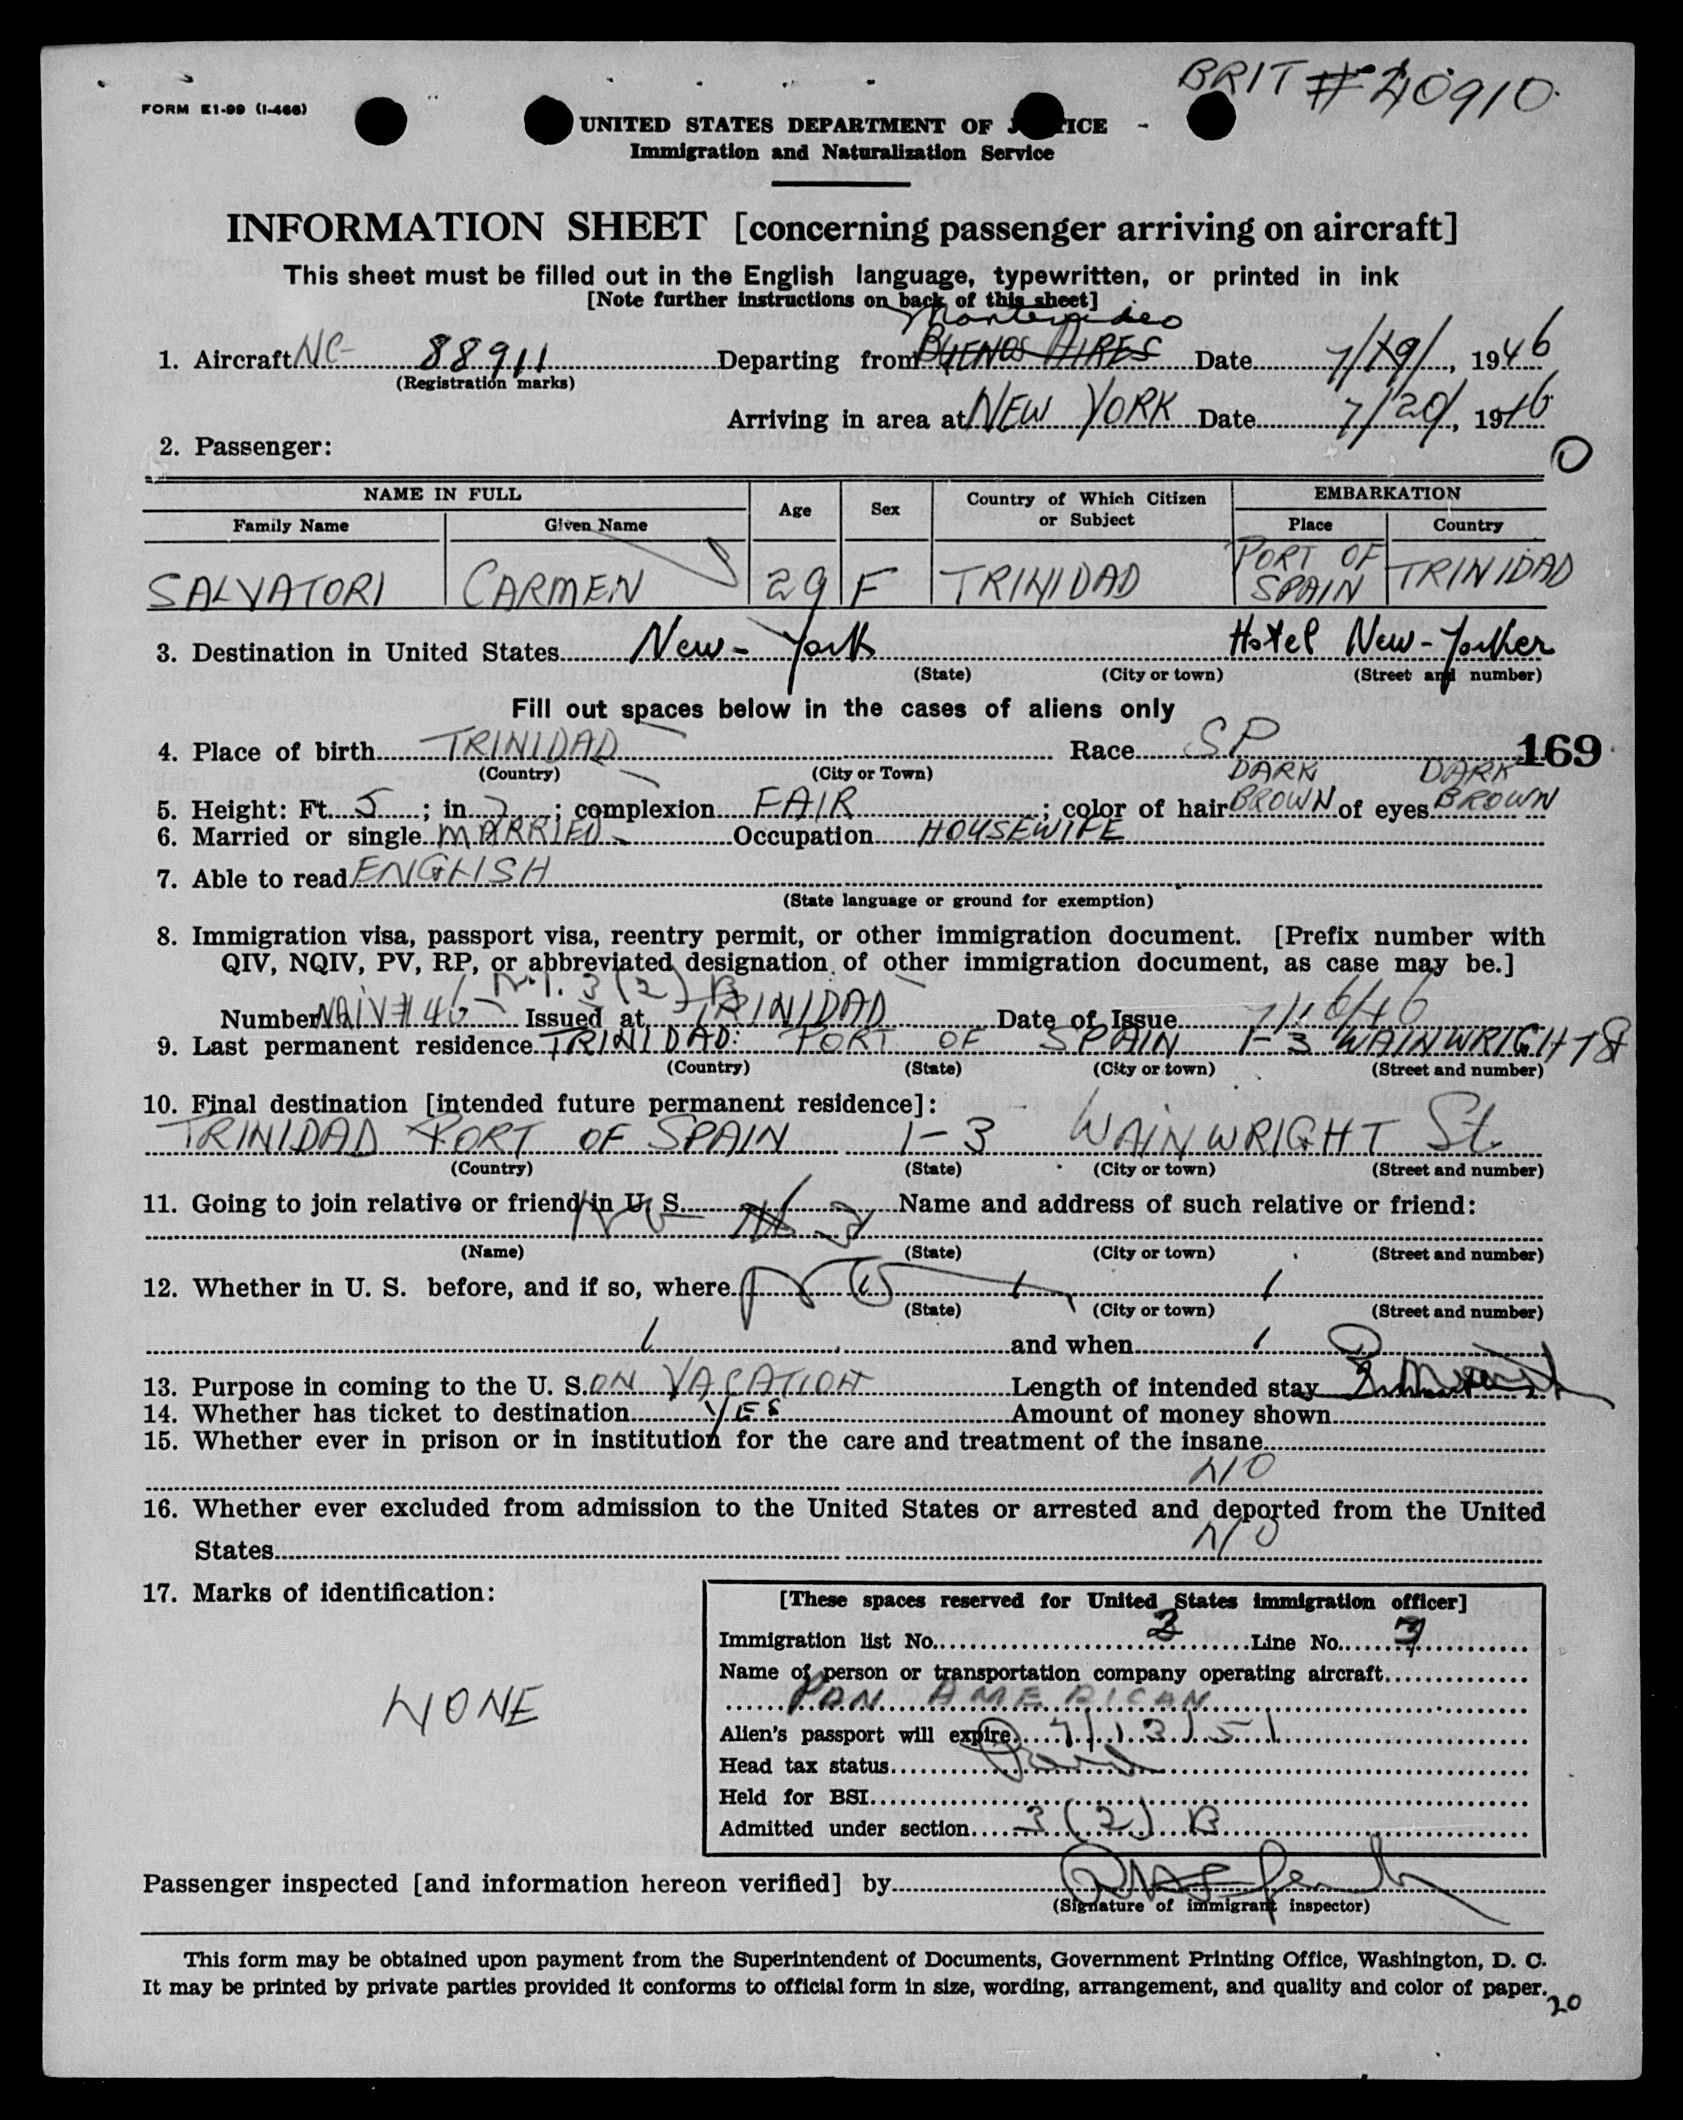 BRIT # 40910
FORM E1-99 (I-466)
UNITED STATES DEPARTMENT OF J ICE
Immigration and Naturalization Service
INFORMATION SHEET [concerning passenger arriving on aircraft]
This sheet must be filled out in the English language, typewritten, or printed in ink
[Note further instructions on back of this sheet]
Montevideo
1. Aircraft NC- 88911 Departing from BUENOS AIRES Date 7/19/, 1946
(Registration marks)
Arriving in area at NEW YORK Date 7/20/, 1946
2. Passenger:
0
NAME IN FULL Age Sex Country of Which Citizen or Subject EMBARKATION
Family Name Given Name Place Country
SALVATORI CARMEN 29 F TRINIDAD PORT OF SPAIN TRINIDAD
3. Destination in United States New-York Hotel New-Yorker
(State) (City or town) (Street and number)
Fill out spaces below in the cases of aliens only
4. Place of birth TRINIDAD Race SP 169
(Country) (City or Town)
DARK DARK
5. Height: Ft. 5; in. 7; complexion FAIR; color of hair BROWN of eyes BROWN
6. Married or single MARRIED Occupation HOUSEWIFE
7. Able to read ENGLISH
(State language or ground for exemption)
8. Immigration visa, passport visa, reentry permit, or other immigration document. [Prefix number with
QIV, NQIV, PV, RP, or abbreviated designation of other immigration document, as case may be.]
3(2) B
Number # 46 Issued at TRINIDAD Date of Issue 7/16/46
9. Last permanent residence TRINIDAD: PORT OF SPAIN 1-3 WAINWRIGHT St
(Country) (State) (City or town) (Street and number)
10. Final destination [intended future permanent residence]:
TRINIDAD PORT OF SPAIN 1-3 WAINWRIGHT St.
(Country) (State) (City or town) (Street and number)
11. Going to join relative or friend in U. S. Name and address of such relative or friend:
(Name) (State) (City or town) (Street and number)
12. Whether in U. S. before, and if so, where
(State) (City or town) (Street and number)
and when
13. Purpose in coming to the U. S. ON VACATION Length of intended stay
14. Whether has ticket to destination YES Amount of money shown
15. Whether ever in prison or in institution for the care and treatment of the insane
NO
16. Whether ever excluded from admission to the United States or arrested and deported from the United
States NO
17. Marks of identification:
NONE
[These spaces reserved for United States immigration officer]
Immigration list No. 2 Line No. 7
Name of person or transportation company operating aircraft
PAN AMERICAN
Alien's passport will expire 7/13/51
Head tax status
Held for BSI
Admitted under section 3(2) B
Passenger inspected [and information hereon verified] by
(Signature of immigrant inspector)
This form may be obtained upon payment from the Superintendent of Documents, Government Printing Office, Washington, D. C.
It may be printed by private parties provided it conforms to official form in size, wording, arrangement, and quality and color of paper.
20